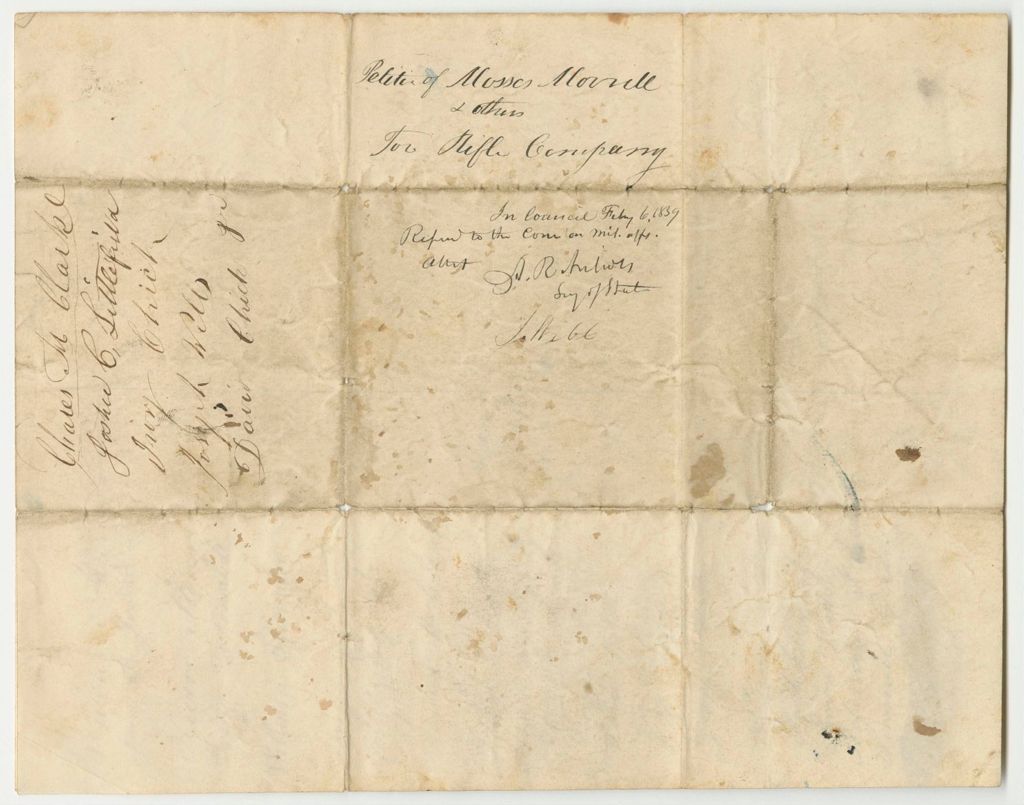 Petitn of Mosses Morrill
& others
For Rifle Company
In Council Feby 6, 1839
Refered to the Come on Mil. affs.
Attest
Secy of State
Chares M Clarke
Joshu C, Littlefield
Ivory Chick
Joseph Wells
David Chick Jr